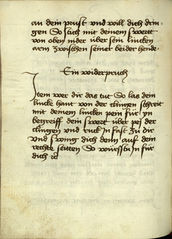 an dem prust und voll dich drin-
gen So such mit deinem swert
von oben nider über sein lincken
arm zwischen seiner beider hende
Ein widerpruch
Item wer dir das tut So las dein
lincke hant von der clingen schreit
mit deinem lincken pein für yn
begreiff dein swert über pey der
clingen und ruck in fast zu dir
und swing dich dann auf dein
rechte seitten So würffstu in für
dich